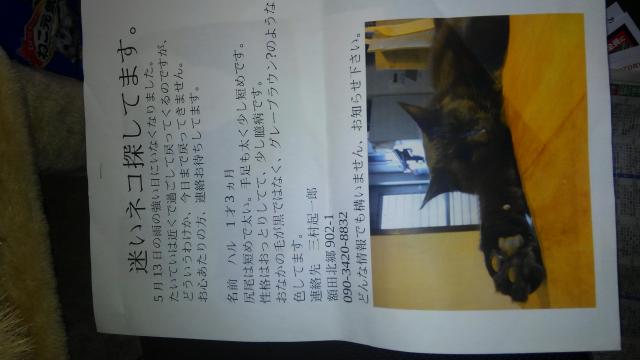 迷いネコ探してます。
５月13日の雨の強い日にいなくなりました。
たいていは近くで過ごして戻ってくるのですが、
どういうわけか、今日まで戻ってきません。
お心あたりの方、連絡お待ちしてます。
名前　ハル　１才３ヵ月
尻尾は短めで太い。手足も太く少し短めです。
性格はおっとりしてて、少し臆病です。
おなかの毛が黒ではなく、グレーブラウン？のような
色してます。
連絡先　三村起一郎
額田北郷902-1
090-3420-8832
どんな情報でも構いません、お知らせ下さい。
ねこ元気